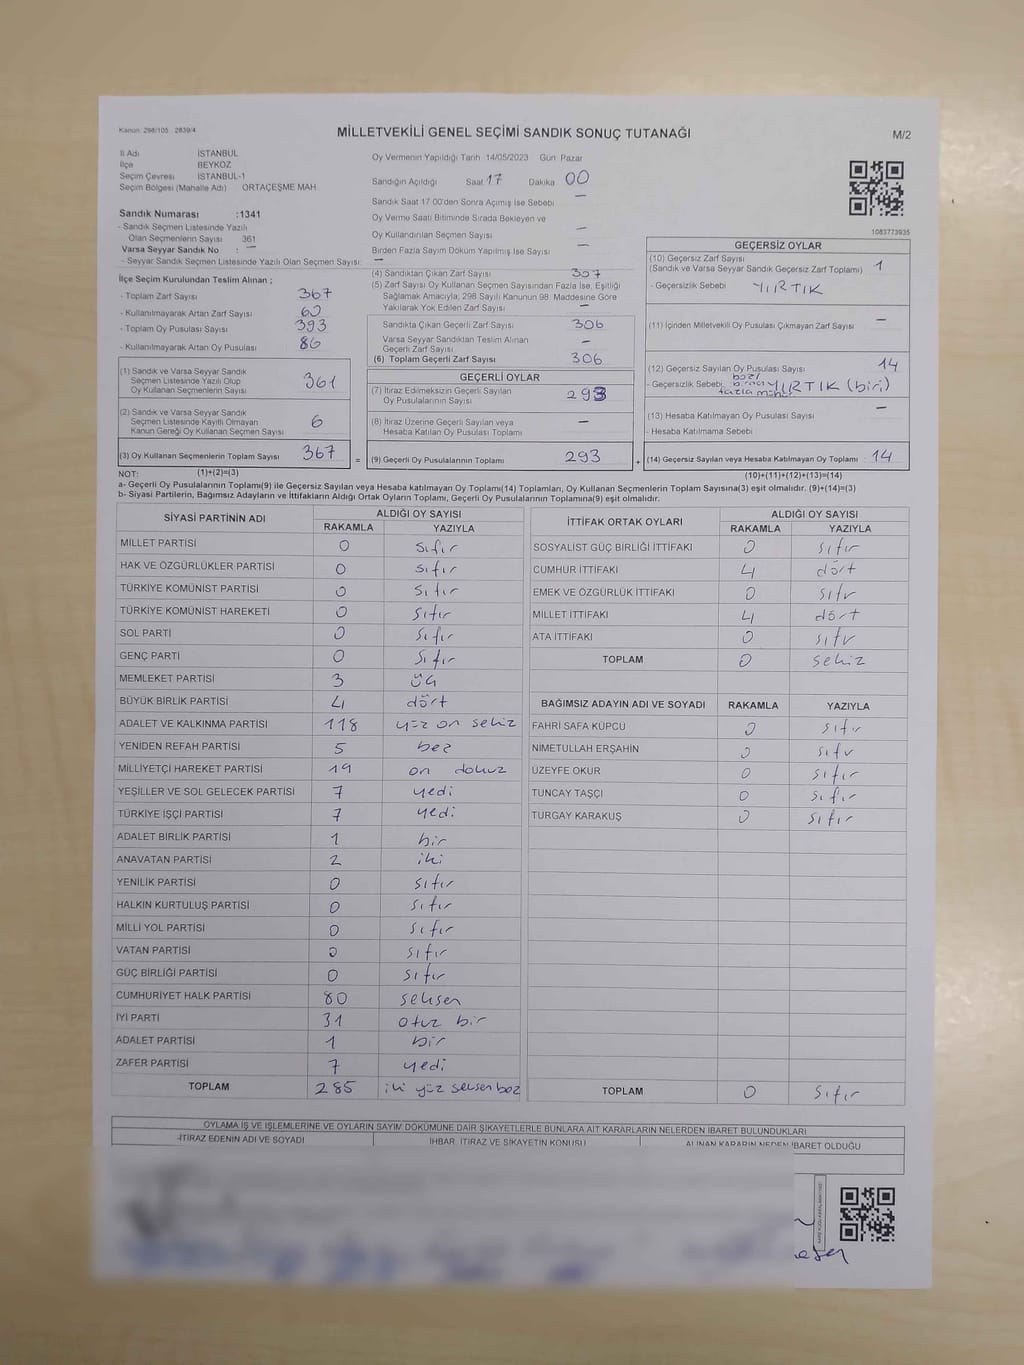 Kanun: 298/105 2839/4
MİLLETVEKİLİ GENEL SEÇİMİ SANDIK SONUÇ TUTANAĞI
M/2
İl Adı İSTANBUL
İlçe BEYKOZ
Seçim Çevresi İSTANBUL-1
Seçim Bölgesi (Mahalle Adı) ORTAÇEŞME MAH
Sandık Numarası :1341
- Sandık Seçmen Listesinde Yazılı
Olan Seçmenlerin Sayısı 361
Varsa Seyyar Sandık No : —
- Seyyar Sandık Seçmen Listesinde Yazılı Olan Seçmen Sayısı: —
Oy Vermenin Yapıldığı Tarih 14/05/2023 Gün: Pazar
Sandığın Açıldığı Saat: 17 Dakika 00
Sandık Saat 17.00'den Sonra Açılmış İse Sebebi —
Oy Verme Saati Bitiminde Sırada Bekleyen ve
Oy Kullandırılan Seçmen Sayısı —
Birden Fazla Sayım Döküm Yapılmış İse Sayısı —
1083773935
İlçe Seçim Kurulundan Teslim Alınan ;
- Toplam Zarf Sayısı 367
- Kullanılmayarak Artan Zarf Sayısı 60
- Toplam Oy Pusulası Sayısı 393
- Kullanılmayarak Artan Oy Pusulası 86
(1) Sandık ve Varsa Seyyar Sandık
Seçmen Listesinde Yazılı Olup
Oy Kullanan Seçmenlerin Sayısı 361
(2) Sandık ve Varsa Seyyar Sandık
Seçmen Listesinde Kayıtlı Olmayan
Kanun Gereği Oy Kullanan Seçmen Sayısı 6
(3) Oy Kullanan Seçmenlerin Toplam Sayısı 367
(4) Sandıktan Çıkan Zarf Sayısı 307
(5) Zarf Sayısı Oy Kullanan Seçmen Sayısından Fazla İse, Eşitliği
Sağlamak Amacıyla; 298 Sayılı Kanunun 98. Maddesine Göre
Yakılarak Yok Edilen Zarf Sayısı —
Sandıkta Çıkan Geçerli Zarf Sayısı 306
Varsa Seyyar Sandıktan Teslim Alınan
Geçerli Zarf Sayısı —
(6) Toplam Geçerli Zarf Sayısı 306
GEÇERLİ OYLAR
(7) İtiraz Edilmeksizin Geçerli Sayılan
Oy Pusulalarının Sayısı 293
(8) İtiraz Üzerine Geçerli Sayılan veya
Hesaba Katılan Oy Pusulası Toplamı —
= (9) Geçerli Oy Pusulalarının Toplamı 293 +
GEÇERSİZ OYLAR
(10) Geçersiz Zarf Sayısı
(Sandık ve Varsa Seyyar Sandık Geçersiz Zarf Toplamı) 1
- Geçersizlik Sebebi YIRTIK
(11) İçinden Milletvekili Oy Pusulası Çıkmayan Zarf Sayısı —
(12) Geçersiz Sayılan Oy Pusulası Sayısı 14
- Geçersizlik Sebebi YIRTIK (biri)
(13) Hesaba Katılmayan Oy Pusulası Sayısı —
- Hesaba Katılmama Sebebi
(14) Geçersiz Sayılan veya Hesaba Katılmayan Oy Toplamı 14
NOT: (1)+(2)=(3) (10)+(11)+(12)+(13)=(14)
a- Geçerli Oy Pusulalarının Toplamı(9) ile Geçersiz Sayılan veya Hesaba katılmayan Oy Toplamı(14) Toplamları, Oy Kullanan Seçmenlerin Toplam Sayısına(3) eşit olmalıdır. (9)+(14)=(3)
b- Siyasi Partilerin, Bağımsız Adayların ve İttifakların Aldığı Ortak Oyların Toplamı, Geçerli Oy Pusulalarının Toplamına(9) eşit olmalıdır.
SİYASİ PARTİNİN ADI ALDIĞI OY SAYISI
RAKAMLA YAZIYLA
MİLLET PARTİSİ 0 sıfır
HAK VE ÖZGÜRLÜKLER PARTİSİ 0 sıfır
TÜRKİYE KOMÜNİST PARTİSİ 0 sıfır
TÜRKİYE KOMÜNİST HAREKETİ 0 sıfır
SOL PARTİ 0 sıfır
GENÇ PARTİ 0 sıfır
MEMLEKET PARTİSİ 3 üç
BÜYÜK BİRLİK PARTİSİ 4 dört
ADALET VE KALKINMA PARTİSİ 118 yüz on sekiz
YENİDEN REFAH PARTİSİ 5 beş
MİLLİYETÇİ HAREKET PARTİSİ 19 on dokuz
YEŞİLLER VE SOL GELECEK PARTİSİ 7 yedi
TÜRKİYE İŞÇİ PARTİSİ 7 yedi
ADALET BİRLİK PARTİSİ 1 bir
ANAVATAN PARTİSİ 2 iki
YENİLİK PARTİSİ 0 sıfır
HALKIN KURTULUŞ PARTİSİ 0 sıfır
MİLLİ YOL PARTİSİ 0 sıfır
VATAN PARTİSİ 0 sıfır
GÜÇ BİRLİĞİ PARTİSİ 0 sıfır
CUMHURİYET HALK PARTİSİ 80 seksen
İYİ PARTİ 31 otuz bir
ADALET PARTİSİ 1 bir
ZAFER PARTİSİ 7 yedi
TOPLAM 285 iki yüz seksen beş
İTTİFAK ORTAK OYLARI ALDIĞI OY SAYISI
RAKAMLA YAZIYLA
SOSYALİST GÜÇ BİRLİĞİ İTTİFAKI 0 sıfır
CUMHUR İTTİFAKI 4 dört
EMEK VE ÖZGÜRLÜK İTTİFAKI 0 sıfır
MİLLET İTTİFAKI 4 dört
ATA İTTİFAKI 0 sıfır
TOPLAM 0 sekiz
BAĞIMSIZ ADAYIN ADI VE SOYADI RAKAMLA YAZIYLA
FAHRİ SAFA KÜPCÜ 0 sıfır
NİMETULLAH ERŞAHİN 0 sıfır
ÜZEYFE OKUR 0 sıfır
TUNCAY TAŞÇI 0 sıfır
TURGAY KARAKUŞ 0 sıfır
TOPLAM 0 sıfır
OYLAMA İŞ VE İŞLEMLERİNE VE OYLARIN SAYIM DÖKÜMÜNE DAİR ŞİKAYETLERLE BUNLARA AİT KARARLARIN NELERDEN İBARET BULUNDUKLARI
İTİRAZ EDENİN ADI VE SOYADI İHBAR, İTİRAZ VE ŞİKAYETİN KONUSU ALINAN KARARIN NEDEN İBARET OLDUĞU